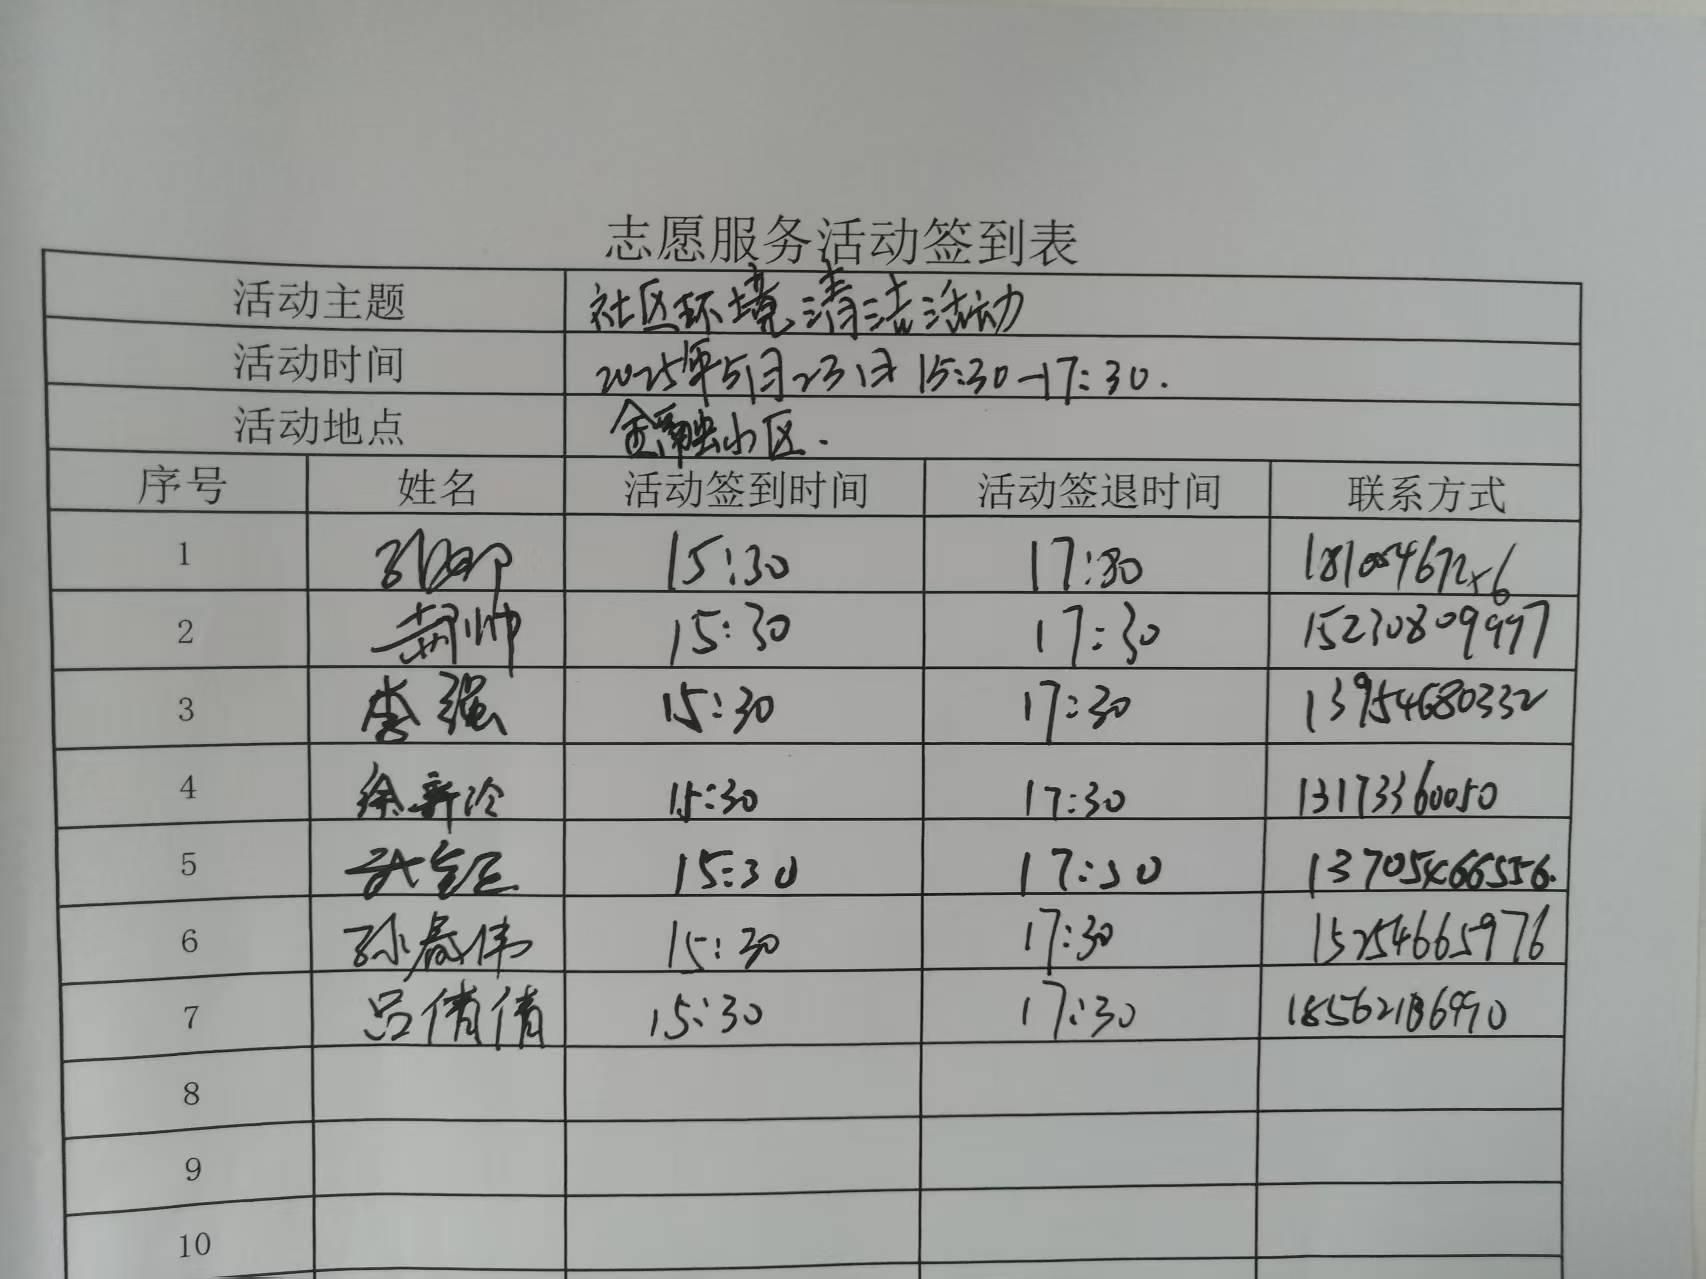 志愿服务活动签到表
活动主题 社区环境清洁活动
活动时间 2025年5月23日 15:30-17:30.
活动地点 金融小区.
序号 姓名 活动签到时间 活动签退时间 联系方式
1 15:30 17:30
2 15:30 17:30 15230809997
3 李强 15:30 17:30 13954680332
4 徐新泠 15:30 17:30 13173360050
5 15:30 17:30 13705466556.
6 孙春伟 15:30 17:30 15254665976
7 吕倩倩 15:30 17:30
8
9
10